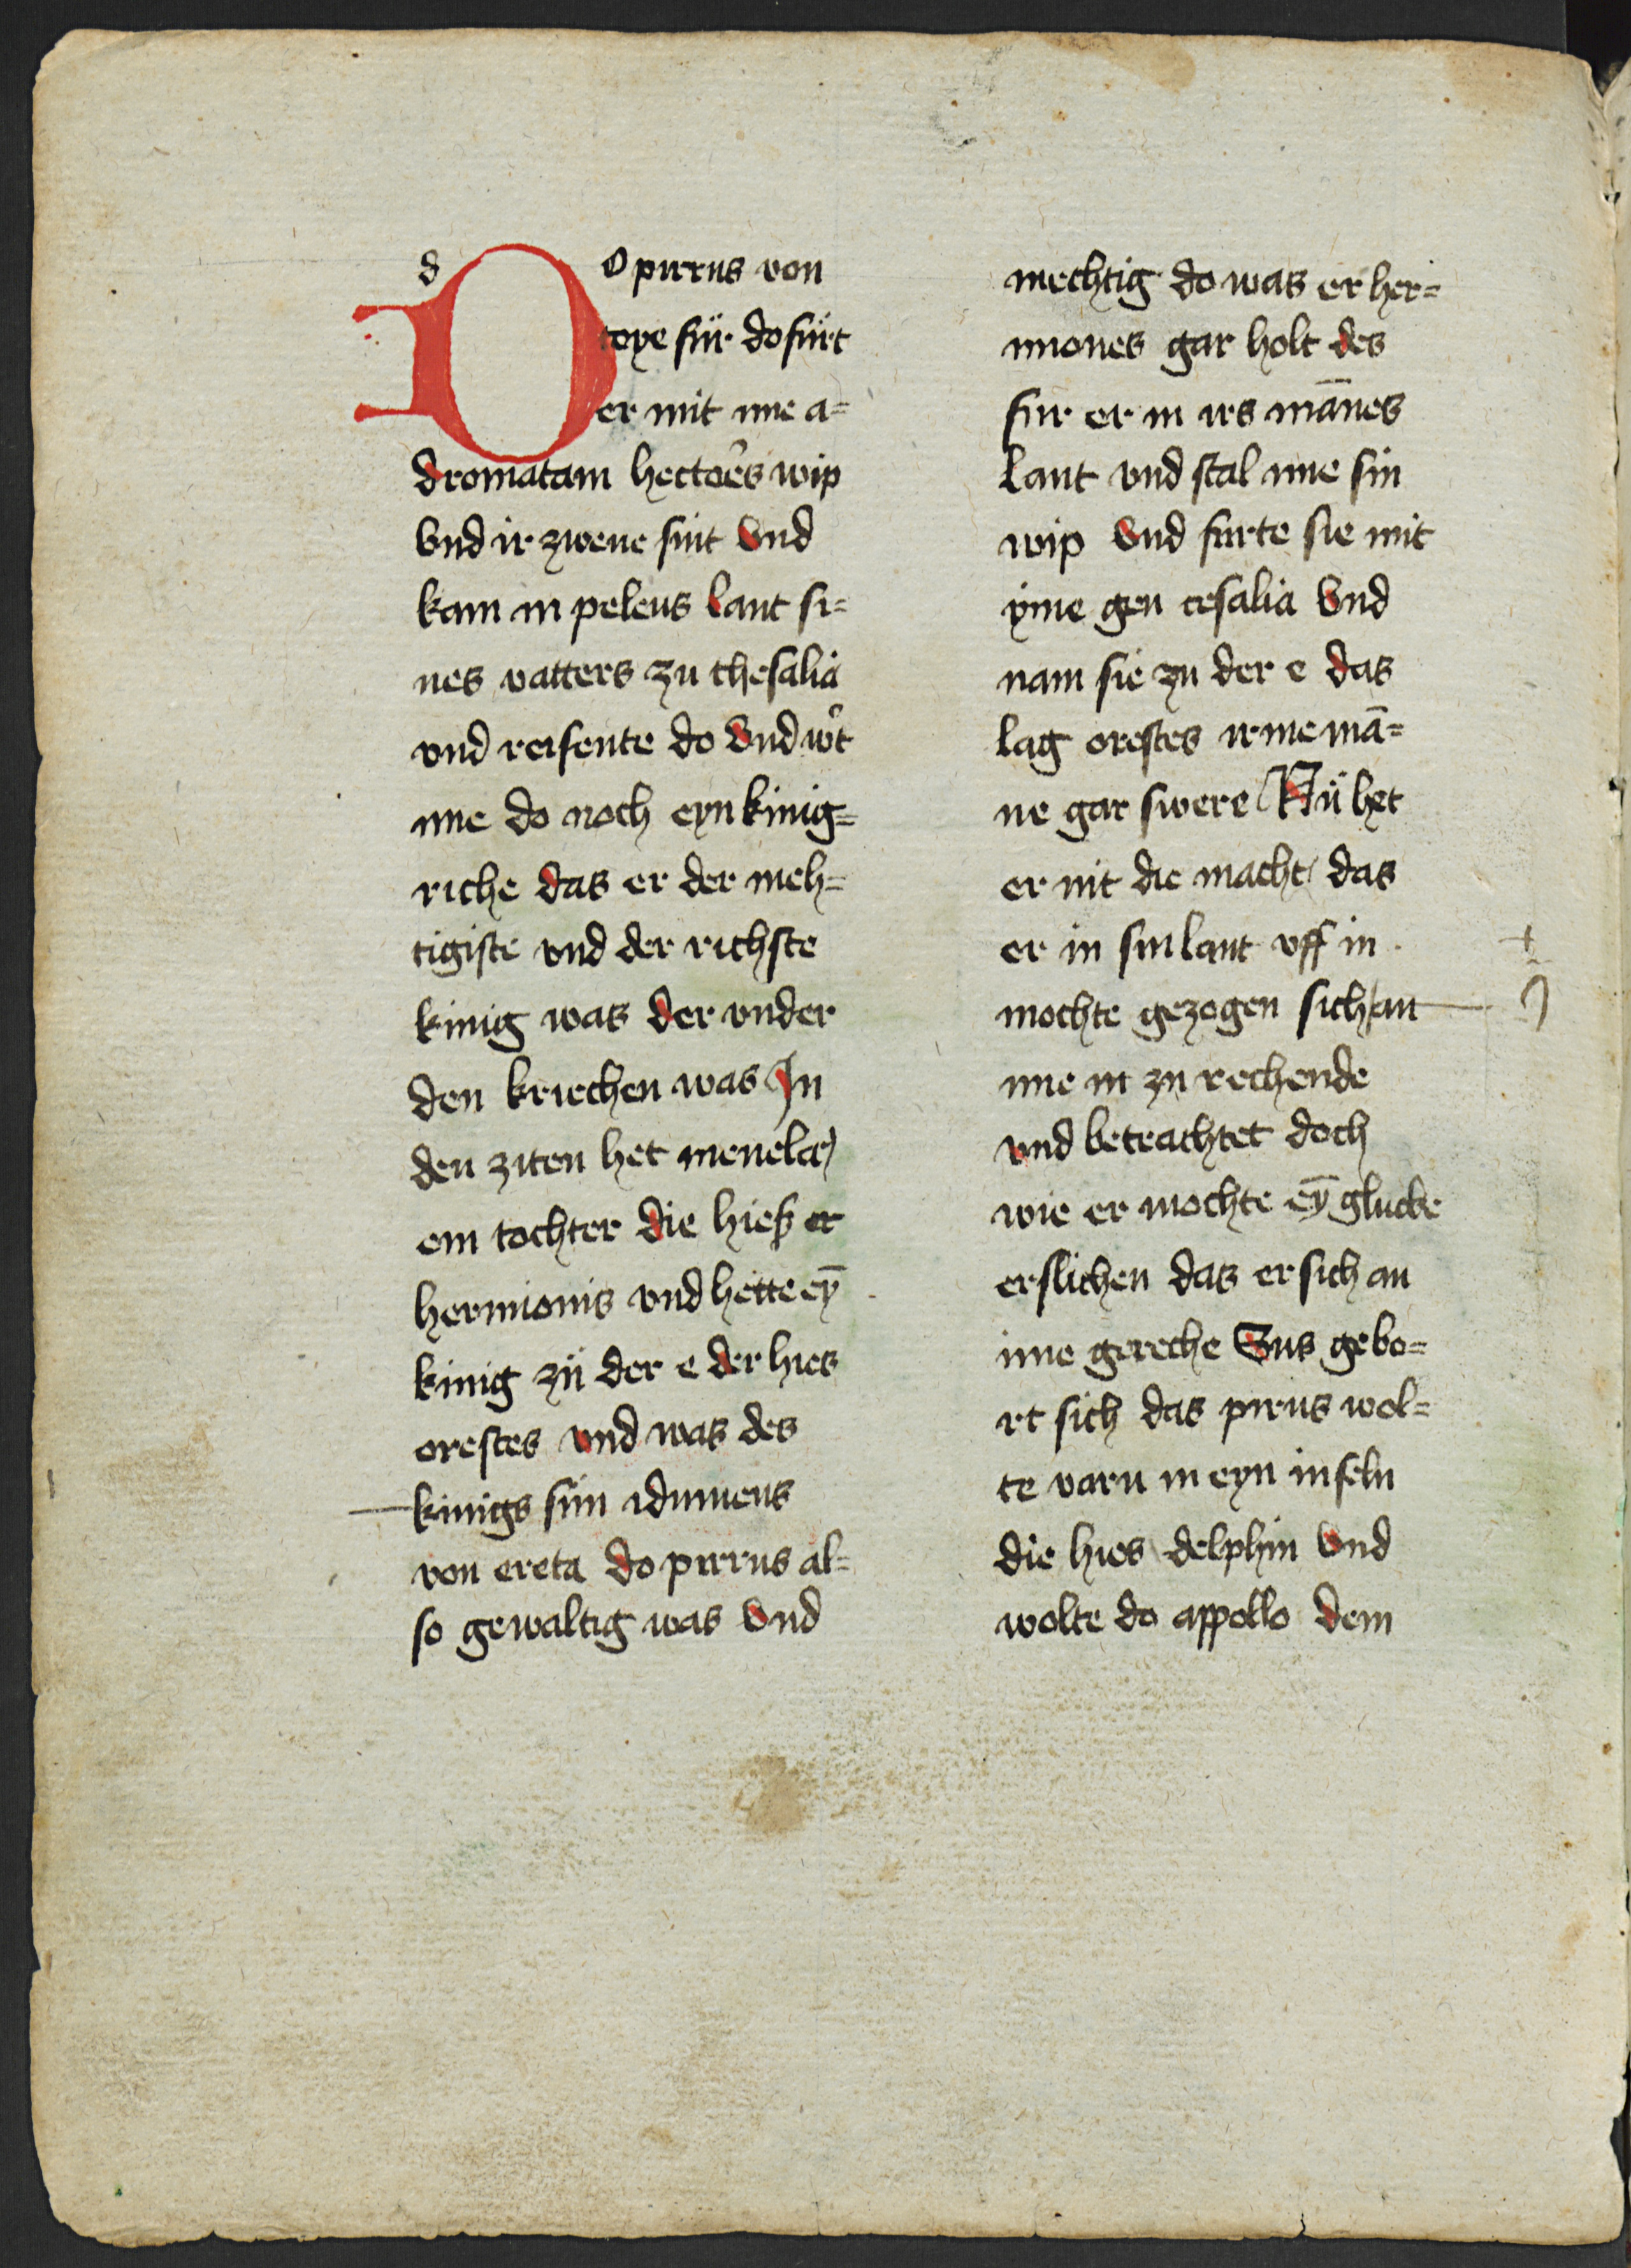 DO pirrus von
toye für do fürt
er mit ime a-
dromatam hectoẽs wip
Vnd ir zwene sint Vnd
kam in peleus lant si-
nes vatters zu thesalia
vnd reisente do Vnd wt
ime do noch eyn kinig-
riche das er der meh-
tigiste vnd der richste
kinig was der vnder
den kriechen was In
den ziten het menelaꝰ
ein tochter die hieß er
hermionis vnd hette eȳ
kinig zü der e der hies
orestes vnd was des
kinigs sün idumeus
von creta do pirrus al-
so gewaltig was Vnd
mechtig do was er her-
miones gar holt des
fur er in irs mānes
lant vnd stal ime sin
wip Vnd furte sie mit
yme gen cesalia Vnd
nam sie zu der e das
lag orestes irme mā-
ne gar swere Nü het
er nit die macht das
er in sin lant vff in
mochte gezogen sich an
ime in zu rechende
vnd betrachtet doch
wie er mochte eȳ glucke
erslichen das er sich an
ime gereche Sus gebo-
rt sich das pirus wol-
te varn in eyn inseln
die hies delphin Vnd
wolte do appollo dem